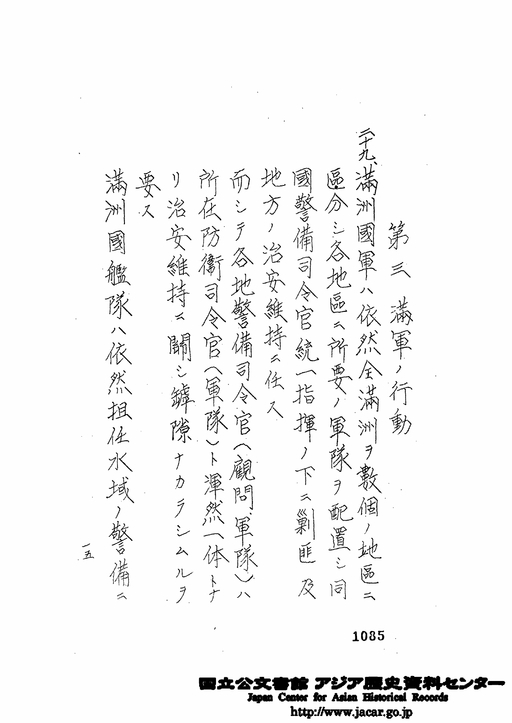 第三 滿軍ノ行動
二十九、滿洲國軍ハ依然全滿洲ヲ數個ノ地區ニ
區分シ各地區ニ所要ノ軍隊ヲ配置シ同
國警備司令官統一指揮ノ下ニ剿匪及
地方ノ治安維持ニ任ス
而シテ各地警備司令官（顧問、軍隊）ハ
所在防衞司令官（軍隊）ト渾然一体トナ
リ治安維持ニ關シ罅隙ナカラシムルヲ
要ス
滿洲國艦隊ハ依然担任水域ノ警備ニ
一五
1085
国立公文書館 アジア歴史資料センター
Japan Center for Asian Historical Records
http://www.jacar.go.jp